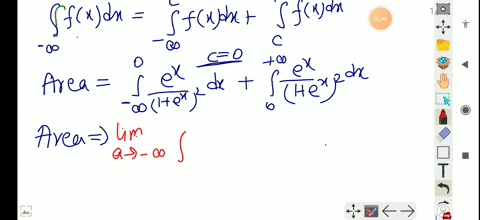 ∫_{-∞} f(x)dx = ∫_{-∞} f(x)dx + ∫_{c} f(x)dx
c=0
Area = ∫_{-∞}^{0} e^x/(1+e^x)^2 dx + ∫_{0}^{+∞} e^x/(1+e^x)^2 dx
Area ⇒ lim_{a→-∞} ∫